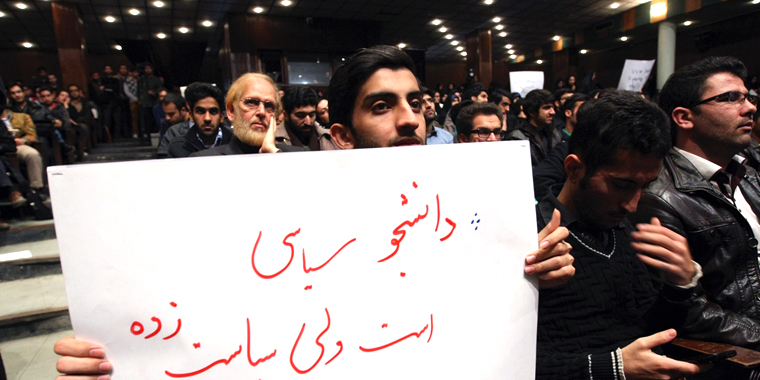 دانشجو سیاسی
است ولی سیاست زده